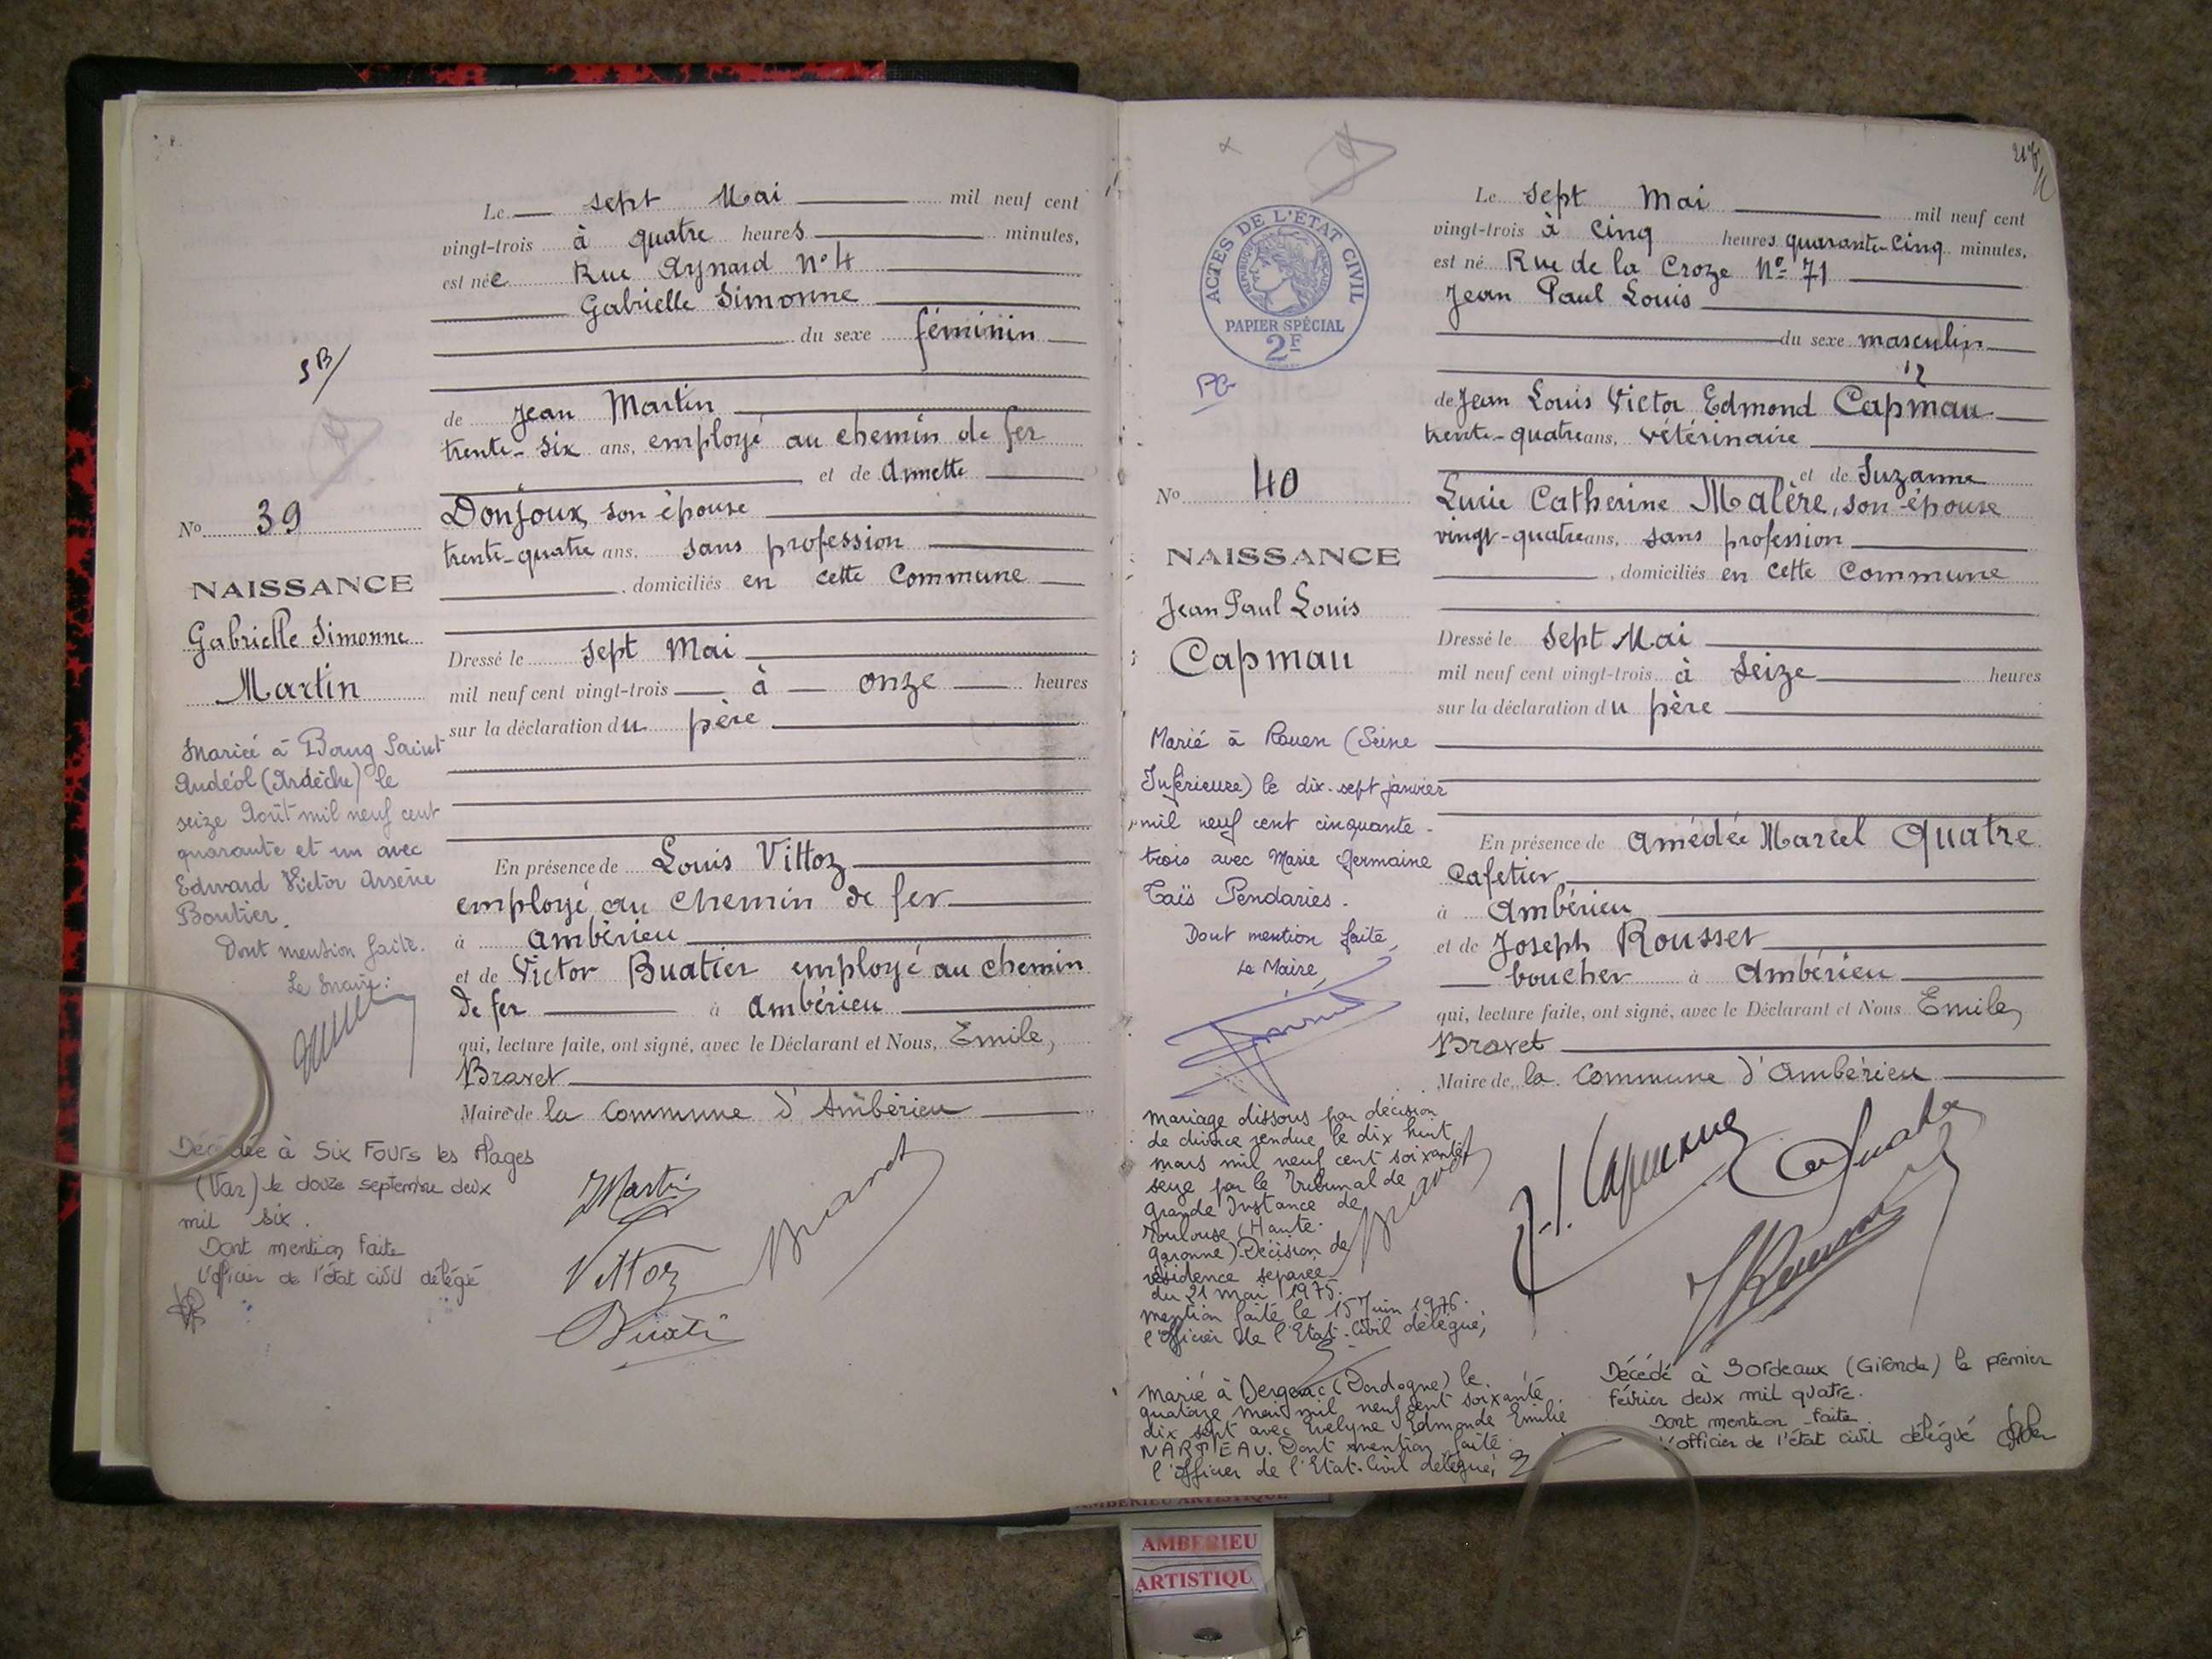 Le sept Mai mil neuf cent
vingt-trois à quatre heures minutes,
est née Rue Aynard N° 4
Gabrielle Simonne
du sexe féminin
SB/
de Jean Martin
trente-six ans, employé au chemin de fer
et de Annette
Donjoux, son épouse
trente-quatre ans, sans profession
domiciliés en cette Commune
No 39
NAISSANCE
Gabrielle Simonne
Martin
Dressé le sept Mai
mil neuf cent vingt-trois à onze heures
sur la déclaration du père
Mariée à Bourg Saint
Andéol (Ardèche) le
seize Août mil neuf cent
quarante et un avec
Edward Victor Arsène
Boutier.
Dont mention faite.
Le Maire:
En présence de Louis Vittoz
employé au chemin de fer
à Ambérieu
et de Victor Buatier employé au chemin
de fer à Ambérieu
qui, lecture faite, ont signé, avec le Déclarant et Nous, Emile,
Bravet
Maire de la Commune d'Ambérieu
Décédée à Six Fours les Plages
(Var) le douze septembre deux
mil six.
Dont mention faite
L'officier de l'état civil délégué
Martin
Vittoz
Bravet
Le sept Mai mil neuf cent
vingt-trois à cinq heures quarante-cinq minutes,
est né Rue de la Croze No 71
Jean Paul Louis
du sexe masculin
ACTES DE L'ÉTAT CIVIL
RÉPUBLIQUE FRANÇAISE
PAPIER SPÉCIAL
2F
PG
de Jean Louis Victor Edmond Capmau
trente-quatre ans, vétérinaire
et de Suzanne
Lucie Catherine Malère, son épouse
vingt-quatre ans, sans profession
, domiciliés en cette Commune
No 40
NAISSANCE
Jean Paul Louis
Capmau
Dressé le sept Mai
mil neuf cent vingt-trois à seize heures
sur la déclaration du père
Marié à Rouen (Seine
Inférieure) le dix-sept janvier
mil neuf cent cinquante-
trois avec Marie Germaine
Taïs Pendaries.
Dont mention faite,
Le Maire,
En présence de Amédée Marcel Quatre
Cafetier
à Ambérieu
et de Joseph Rousset
boucher à Ambérieu
qui, lecture faite, ont signé, avec le Déclarant et Nous Emile,
Bravet
Maire de la Commune d'Ambérieu
Mariage dissous par décision
de divorce rendue le dix huit
mars mil neuf cent soixante
seize par le Tribunal de
Grande Instance de
Toulouse (Haute-
Garonne). Décision de
résidence séparée
du 21 mai 1975.
mention faite le 15 Juin 1976.
l'Officier de l'Etat-Civil délégué,
Bravet
Marié à Bergerac (Dordogne) le
quatorze mai mil neuf cent soixante
dix sept avec Evelyne Edmonde Emilie
NARTEAU. Dont mention faite.
l'Officier de l'Etat-Civil délégué,
Décédé à Bordeaux (Gironde) le premier
février deux mil quatre.
Dont mention faite
L'officier de l'état civil délégué
AMBERIEU ARTISTIQUE
AMBERIEU
ARTISTIQU